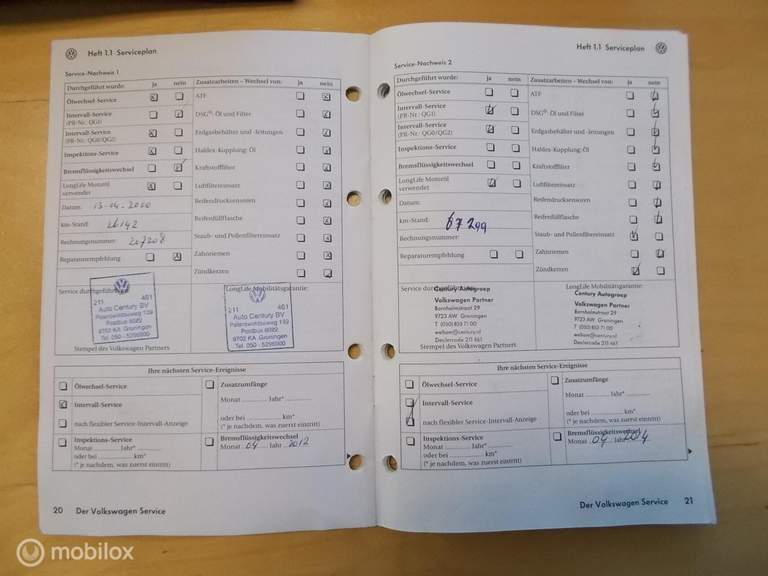 Heft 1.1 Serviceplan
Service-Nachweis 1
Durchgeführt wurde: ja nein Zusatzarbeiten - Wechsel von: ja nein
Ölwechsel-Service ATF
Intervall-Service DSG®: Öl und Filter
(PR-Nr.: QG1)
Intervall-Service Erdgasbehälter und -leitungen
(PR-Nr.: QG0/QG2)
Inspektions-Service Haldex-Kupplung: Öl
Bremsflüssigkeitswechsel Kraftstofffilter
LongLife Motoröl Luftfiltereinsatz
verwendet
Datum: Reifendrucksensoren
km-Stand: 26142 Reifenfüllflasche
Rechnungsnummer: Staub- und Pollenfiltereinsatz
Reparaturempfehlung Zahnriemen
Zündkerzen
Service durchgeführt LongLife Mobilitätsgarantie:
211 461
Auto Century BV
Postbus 8082
9702 KA Groningen
Tel. 050 - 5296300
211 461
Auto Century BV
Postbus 8082
9702 KA Groningen
Tel. 050 - 5296300
Stempel des Volkswagen Partners
Ihre nächsten Service-Ereignisse
Ölwechsel-Service Zusatzumfänge
Monat Jahr*
Intervall-Service
oder bei km*
nach flexibler Service-Intervall-Anzeige (* je nachdem, was zuerst eintritt)
Inspektions-Service Bremsflüssigkeitswechsel
Monat Jahr* Monat 04 Jahr 2012
oder bei km*
(* je nachdem, was zuerst eintritt)
20 Der Volkswagen Service
Heft 1.1 Serviceplan
Service-Nachweis 2
Durchgeführt wurde: ja nein Zusatzarbeiten - Wechsel von: ja nein
Ölwechsel-Service ATF
Intervall-Service DSG®: Öl und Filter
(PR-Nr.: QG1)
Intervall-Service Erdgasbehälter und -leitungen
(PR-Nr.: QG0/QG2)
Inspektions-Service Haldex-Kupplung: Öl
Bremsflüssigkeitswechsel Kraftstofffilter
LongLife Motoröl Luftfiltereinsatz
verwendet
Datum: Reifendrucksensoren
km-Stand: 67299 Reifenfüllflasche
Rechnungsnummer: Staub- und Pollenfiltereinsatz
Reparaturempfehlung Zahnriemen
Zündkerzen
Service LongLife Mobilitätsgarantie:
Century Autogroep
Volkswagen Partner
Bornholmstraat 29
9723 AW Groningen
T (050) 853 71 00
Dealercode 211 461
Century Autogroep
Volkswagen Partner
Bornholmstraat 29
9723 AW Groningen
T (050) 853 71 00
Dealercode 211 461
Stempel des Volkswagen Partners
Ihre nächsten Service-Ereignisse
Ölwechsel-Service Zusatzumfänge
Monat Jahr*
Intervall-Service
oder bei km*
nach flexibler Service-Intervall-Anzeige (* je nachdem, was zuerst eintritt)
Inspektions-Service Bremsflüssigkeitswechsel
Monat Jahr* Monat 04 2014
oder bei km*
(* je nachdem, was zuerst eintritt)
Der Volkswagen Service 21
mobilox